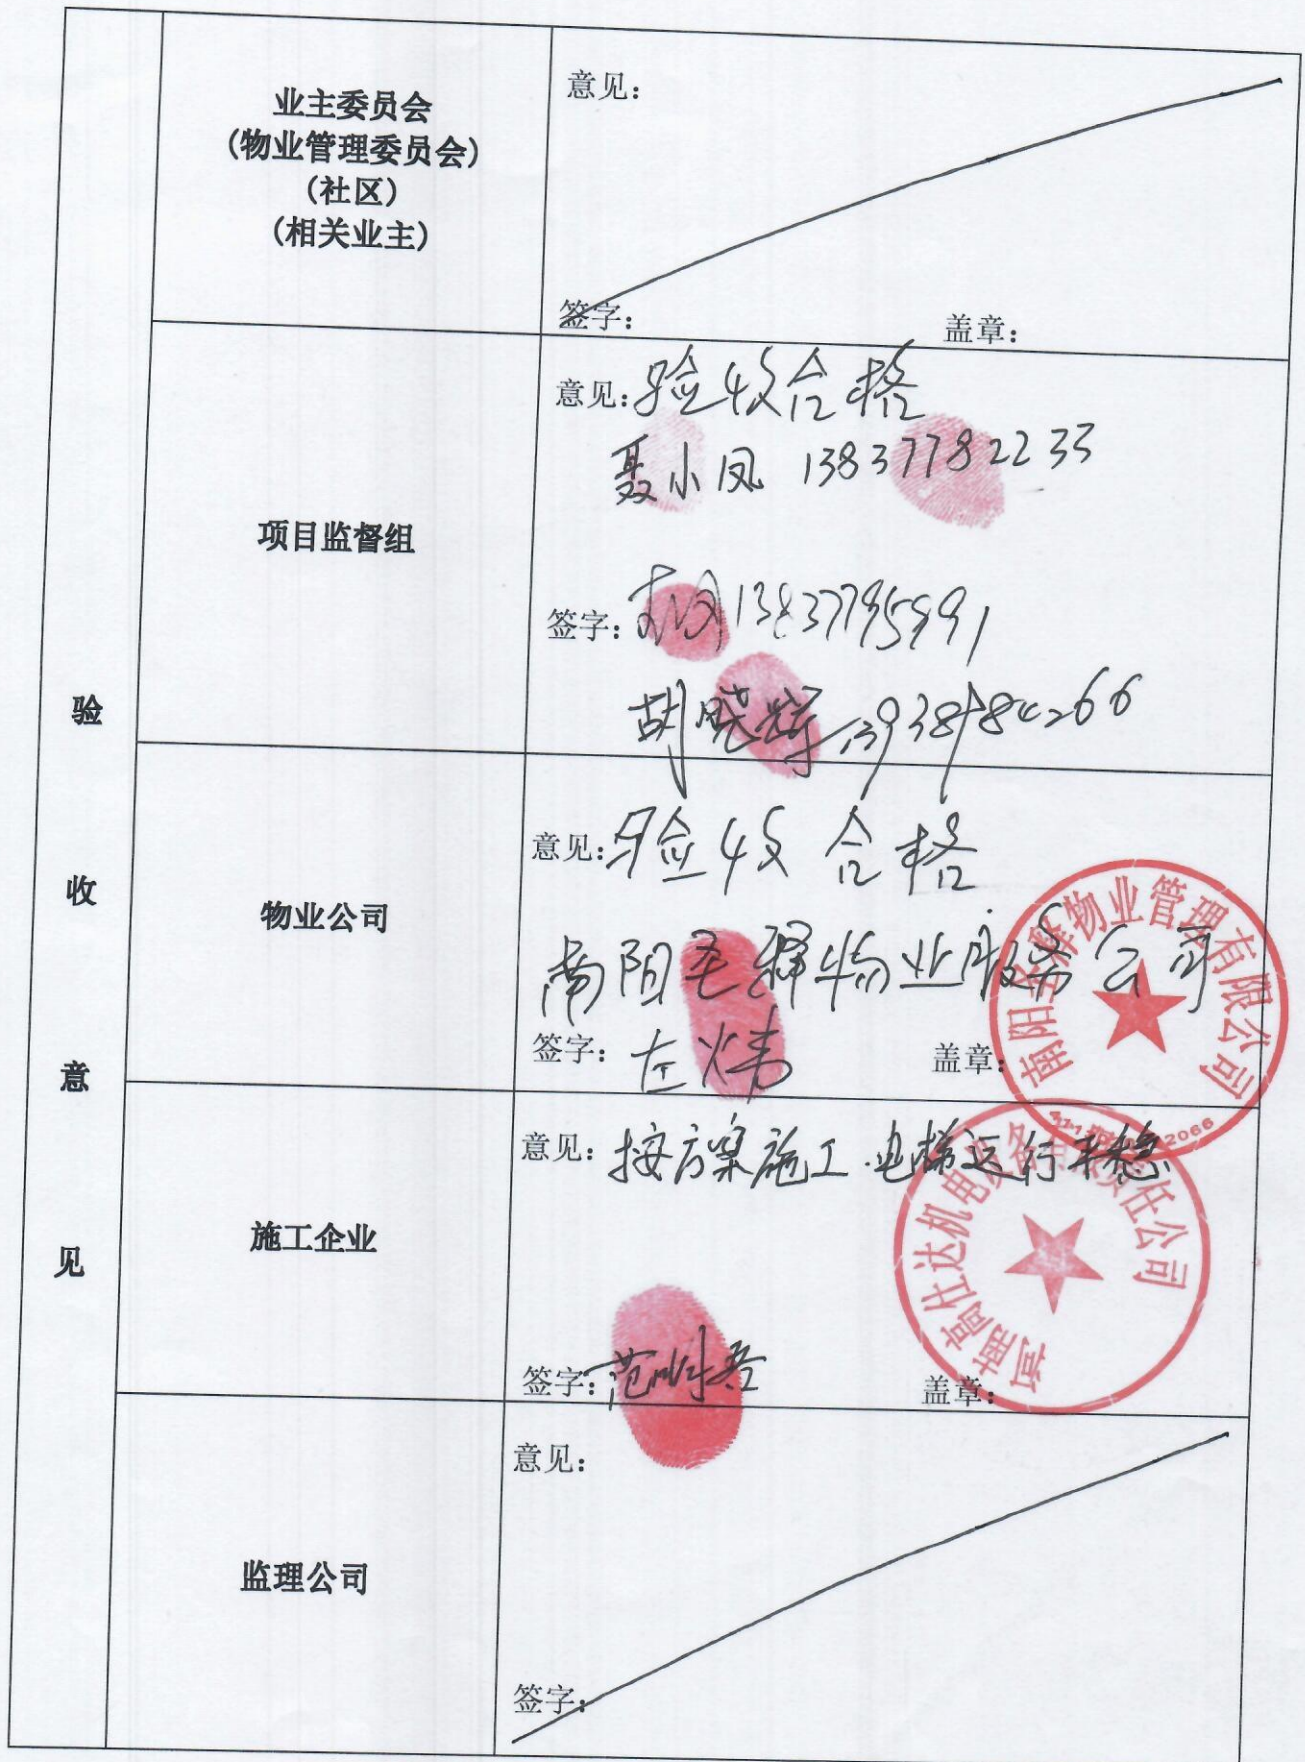 验收意见
业主委员会
(物业管理委员会)
(社区)
(相关业主)
意见：
签字：
盖章：
项目监督组
意见：验收合格
聂小凤 13837782233
签字：
胡晓辉
物业公司
意见：验收合格
南阳圣驿物业服务公司
签字：左炜
盖章：
物业管理有限公司
施工企业
意见：按方案施工.电梯运行平稳
签字：范
盖章：
河南高仕达机电设备有限责任公司
监理公司
意见：
签字：